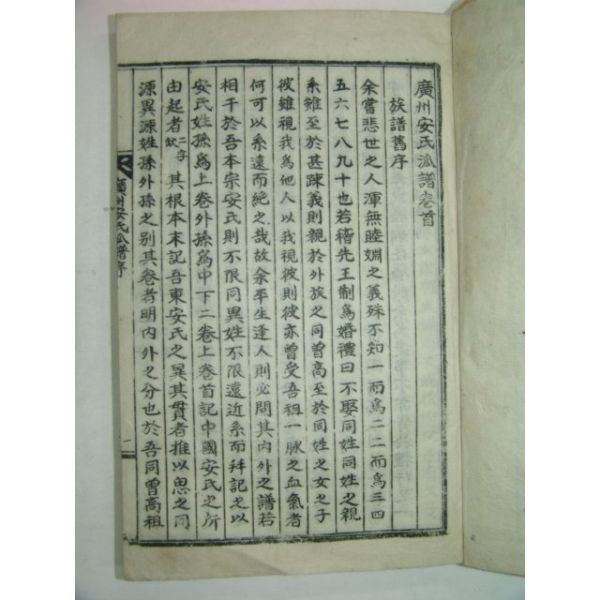 廣州安氏派譜卷首
族譜舊序
余嘗悲世之人渾無睦婣之義殊不知一而爲二二而爲三四
五六七八九十也若稽先王制爲婚禮曰不娶同姓同姓之親
系雖至於甚踈義則親於外族之同曾高至於同姓之女之子
彼雖視我爲他人以我視彼則彼亦曾受吾祖一脈之血氣者
何可以系遠而絶之哉故余平生逢人則必問其內外之譜若
相干於吾本宗安氏則不限同異姓不限遠近系而幷記之以
安氏姓孫爲上卷外孫爲中下二卷上卷首記中國安氏之所
由起者二字缺其根本末記吾東安氏之異其貫者推以思之同
源異源姓孫外孫之别其卷者明內外之分也於吾同曾高祖
廣州安氏派譜序
一